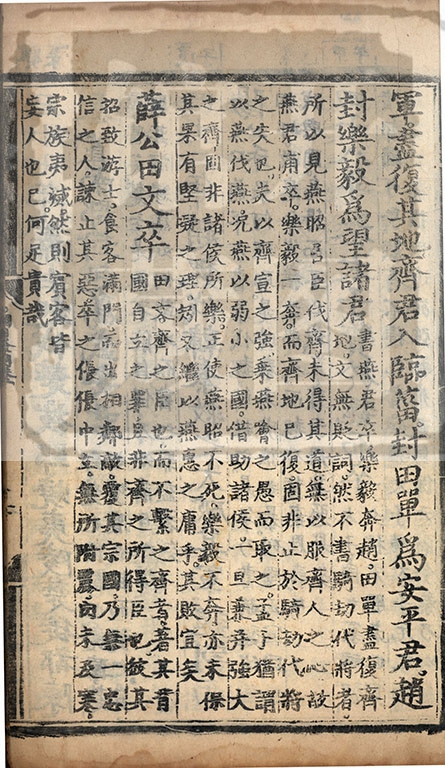 軍盡復其地齊君入臨菑封田單爲安平君趙
封樂毅爲望諸君
書燕君卒樂毅奔趙田單盡復齊
地文無貶詞然不書騎劫代將者
所以見燕昭君臣伐齊未得其道無以服齊人之心設
燕君甫卒樂毅一奔而齊地已復固非止於騎劫代將
之失也夫以齊宣之強乗燕噲之愚而取之孟子猶謂
以燕伐燕况燕以弱小之國借助諸侯一旦兼并強大
之齊固非諸侯所樂正使燕昭不死樂毅不奔亦未保
其果有堅凝之理矧又繼以燕惠之庸乎其敗宜矣
薛公田文卒
田文齊之臣也而不繫之齊者著其背
國自立之罪且非齊之所得臣也彼其
招致游士食客滿門而出相鄰敵覆其宗國乃無一忠
信之人諫止其惡卒之倀倀中立無所附麗肉未及寒
宗族夷滅然則賓客皆
妄人也已何足貴哉